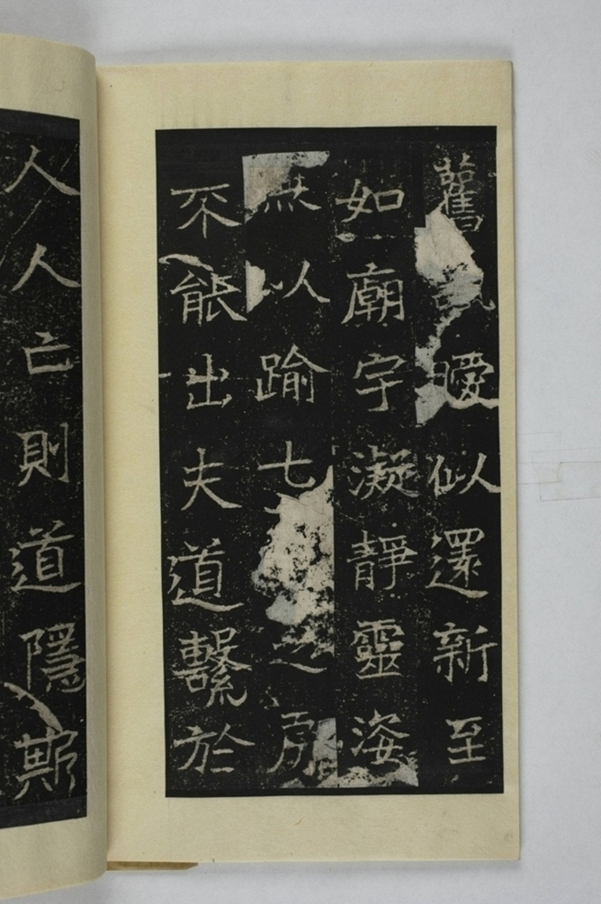 舊曖似還新至
如廟宇凝靜靈姿
無以踰七之房
不能出夫道繫於
人人亡則道隱斯